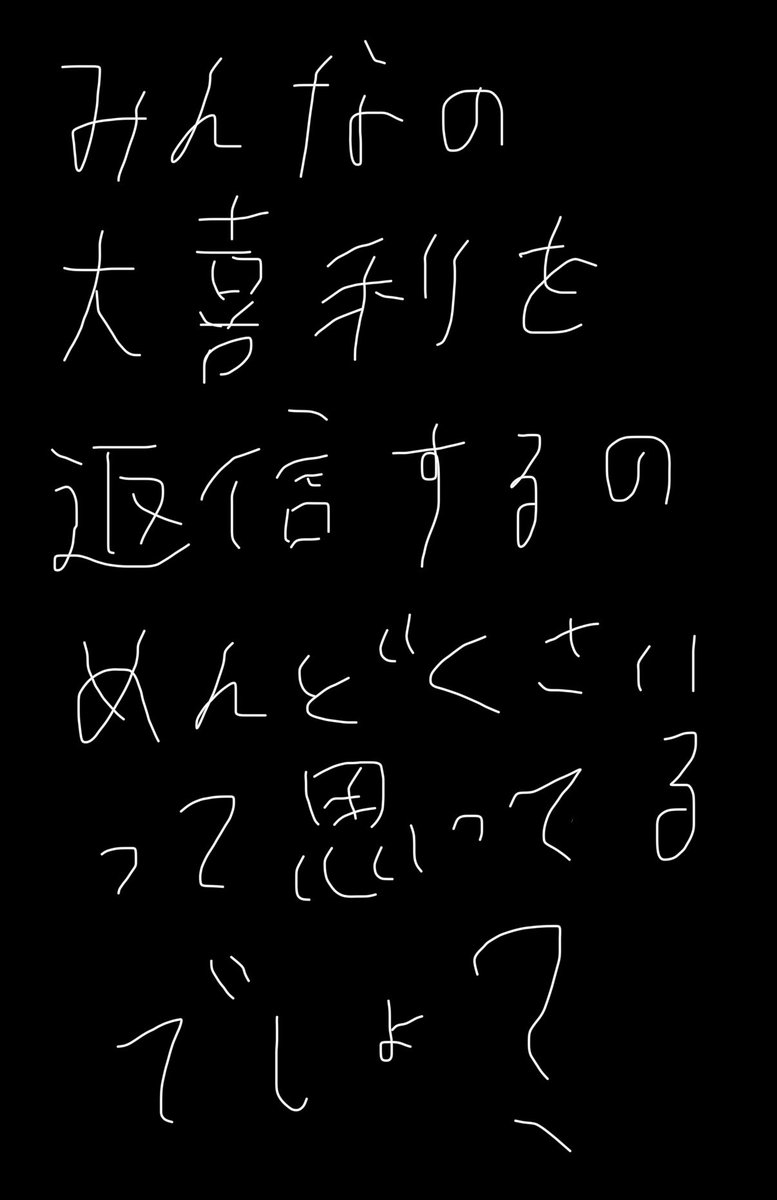 みんなの
大喜利を
返信するの
めんどくさい
って思ってる
でしょ?